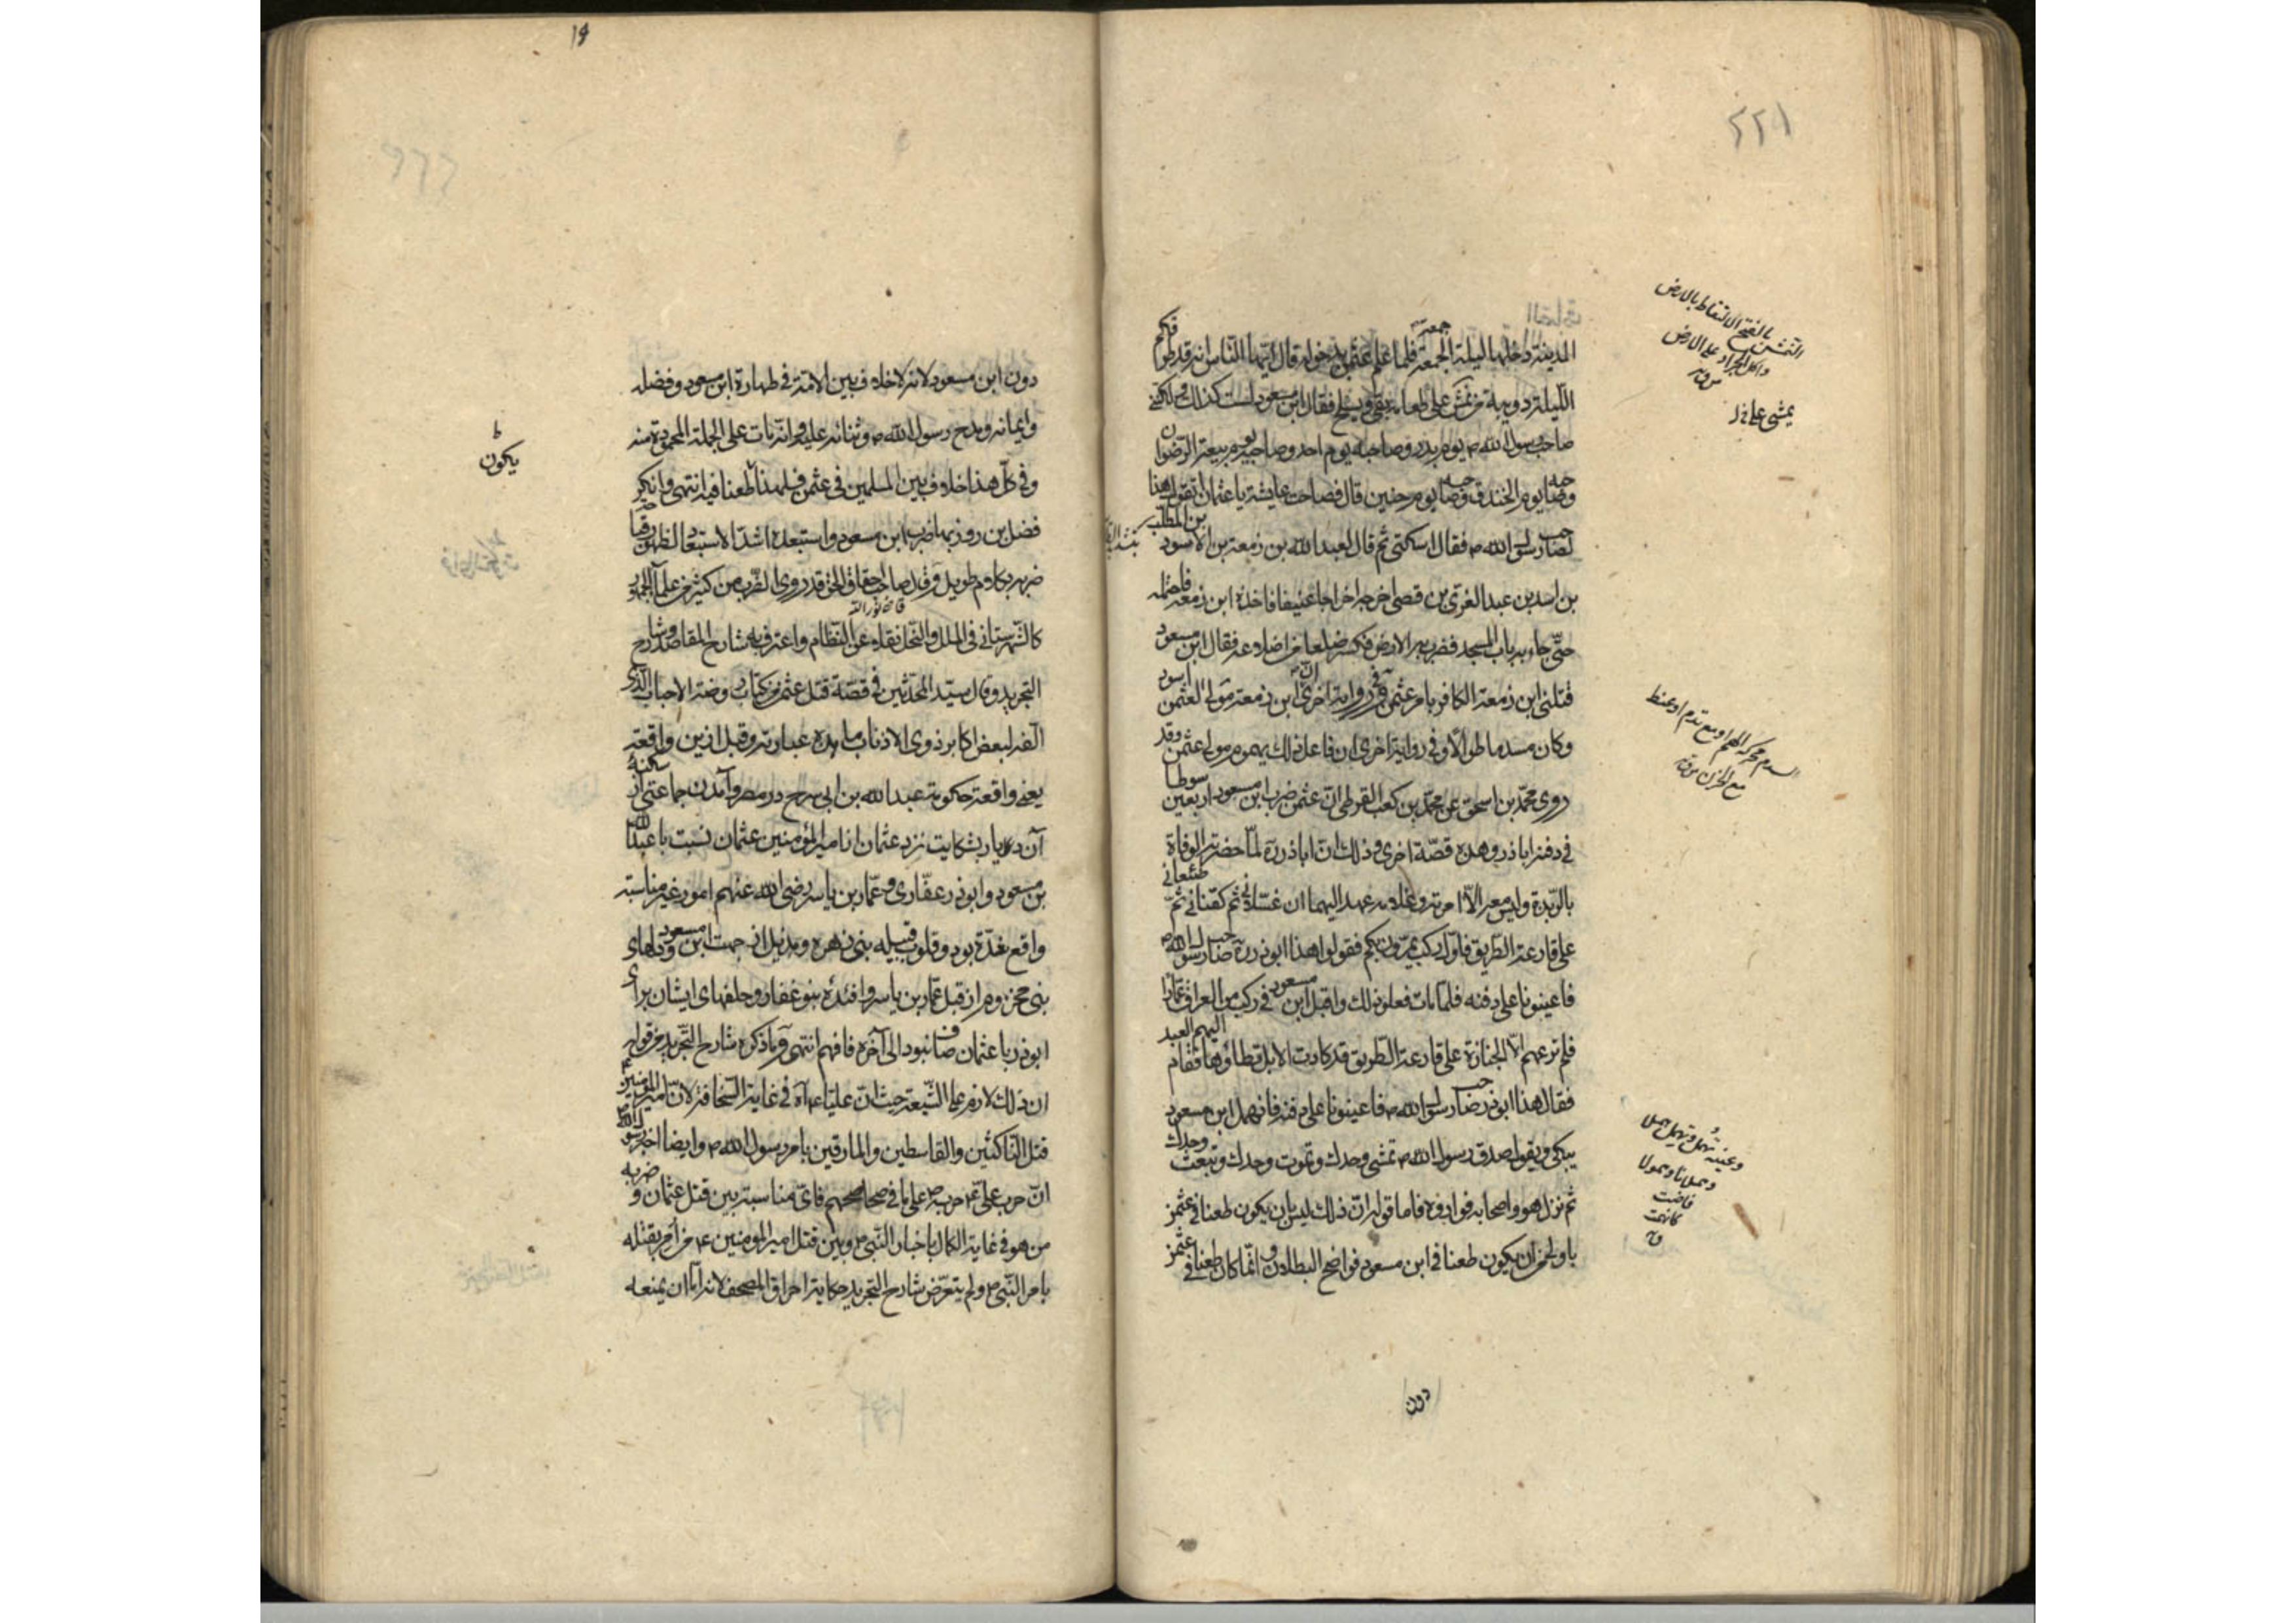 ٢٢١
المدينة دخلها ليلة الجمعة فلما علم عثمن بدخوله قال ايها الناس انه قد طرقكم
الليلة دويبة من تمش على طعامه يقئ ويسلح فقال ابن مسعود لست كذلك ولكنني
صاحب رسول الله ص يوم بدر وصاحبه يوم احد وصاحبه يوم بيعة الرضوان
وصاحبه يوم الخندق وصاحبه يوم حنين قال فصاحت عايشة يا عثمان اتقول هذا
لصاحب رسول الله ص فقال اسكتى ثم قال لعبد الله بن زمعة بن الاسود بن المطلب
بن اسد بن عبد العزى بن قصى اخرجه اخراجا عنيفا فاخذه ابن زمعة فاحتمله
حتى جاء به باب المسجد فضرب به الارض فكسر ضلعا من اضلاعه فقال ابن مسعود
قتلنى ابن زمعة الكافر بامر عثمن وفى رواية اخرى ان ابن زمعة مولى لعثمن اسود
وكان مسدما طوالا وفى رواية اخرى ان فاعل ذلك يحموم مولى عثمن وقد
روى محمد بن اسحق عن محمد بن كعب القرظى ان عثمن ضرب ابن مسعود اربعين سوطا
فى دفنه اباذر وهذه قصة اخرى وذلك ان اباذر ره لما حضرته الوفاة
بالربذة وليس معه الا امرته وغلامه عهد اليهما ان غسلانى ثم كفنانى ثم ضعانى
على قارعة الطريق فاول ركب يمرون بكم فقولوا هذا ابوذر ره صاحب رسول الله ص
فاعينونا على دفنه فلما مات فعلوا ذلك واقبل ابن مسعود فى ركب من العراق عمارا
فلم ترعهم الا الجنازة على قارعة الطريق قد كادت الابل تطاؤها فقام اليهم العبد
فقال هذا ابوذر صاحب رسول الله ص فاعينونا على دفنه فانهمل ابن مسعود
يبكى ويقول صدق رسول الله ص تمشى وحدك وتموت وحدك وتبعث وحدك
ثم نزل هو واصحابه فواروه فاما قوله ان ذلك ليس بان يكون طعنا فى عثمن
باولى من ان يكون طعنا فى ابن مسعود فواضح البطلان وانما كان طعنا فى عثمن
دون
بالفتح الالتقاط بالارض
واكل الجراد على الارض
يمشى على
مع الحزن
فاضت
دون ابن مسعود لانه لا خلاف بين الامة فى طهارة ابن مسعود وفضله
وايمانه ومدح رسول الله ص وثنائه عليه وانه مات على الجملة المحمودة منه
وفى كل هذا خلاف بين المسلمين فى عثمن فلهذا طعنا فيه انتهى وانكر
فضل بن روزبهان ضرب ابن مسعود واستبعده اشد الاستبعاد
ضربه بكلام طويل وقال صاحب احقاق الحق قد روى الضرب من كثير من علماء الجمهور
قاضى نور الله
كالشهرستانى فى الملل والنحل نقلا عن النظام واعترف به شارح المقاصد وشارح
التجريد وقال سيد المحدثين فى قصة قتل عثمن من كتاب روضة الاحباب الذى
الفه لبعض اكابر ذوى الاذناب ما هذه عبارته وقبل ازين واقعة
يعنى واقعة حكومة عبد الله بن ابى سرح در مصر وآمدن جماعتى از سكنه
آن ديار بشكايت نزد عثمان از امير المؤمنين عثمان نسبت با عبد الله
بن مسعود وابوذر غفارى وعمار بن ياسر رضى الله عنهم امور غير مناسبه
واقع شده بود وقلوب قبيله بنى زهره وهذيل از جهت ابن مسعود ودلهاى
بنى مخزوم از قبل عمار بن ياسر وافئده بنو غفار وحلفهاى ايشان براى
ابوذر با عثمان صاف نبود الى آخره فافهم انتهى وما ذكره شارح التجريد من قوله
ان ذلك لازم على الشيعة حيث ان عليا ع آه فى غاية السخافة لان امير المؤمنين ع
قتل الناكثين والقاسطين والمارقين بامر رسول الله ص وايضا اخبر رسول الله ص
ان حرب على ع حربه ص على ما فى صحاحهم فاى مناسبة بين قتل عثمان وضربه
من هو فى غاية الكمال باخبار النبى ص وبين قتل امير المؤمنين ع من أمر بقتله
بامر النبى ص ولم يتعرض شارح التجريد حكاية احراق المصحف لانه اما ان يمنعه
يكون